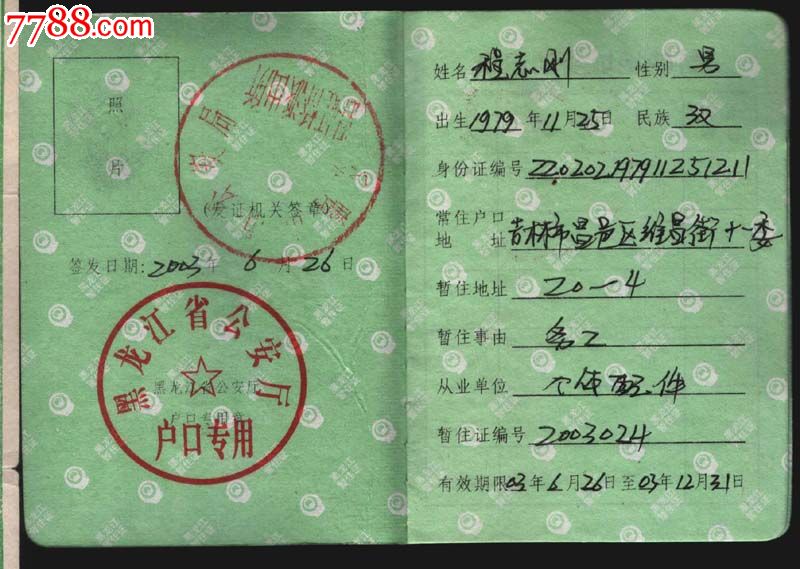 7788.com
照
片
(发证机关签章)
签发日期:2003年 6 月 26 日
黑龙江省公安厅
黑龙江省公安厅
户口专用章
户口专用
姓名 程志刚 性别 男
出生 1979 年 11 月 25 日 民族 汉
身份证编号 220202197911251211
常住户口
地 址 吉林市昌邑区维昌街十一委
暂住地址 20-4
暂住事由 务工
从业单位 个体配件
暂住证编号 2003024
有效期限 03 年 6 月 26 日至 03 年 12 月 31 日